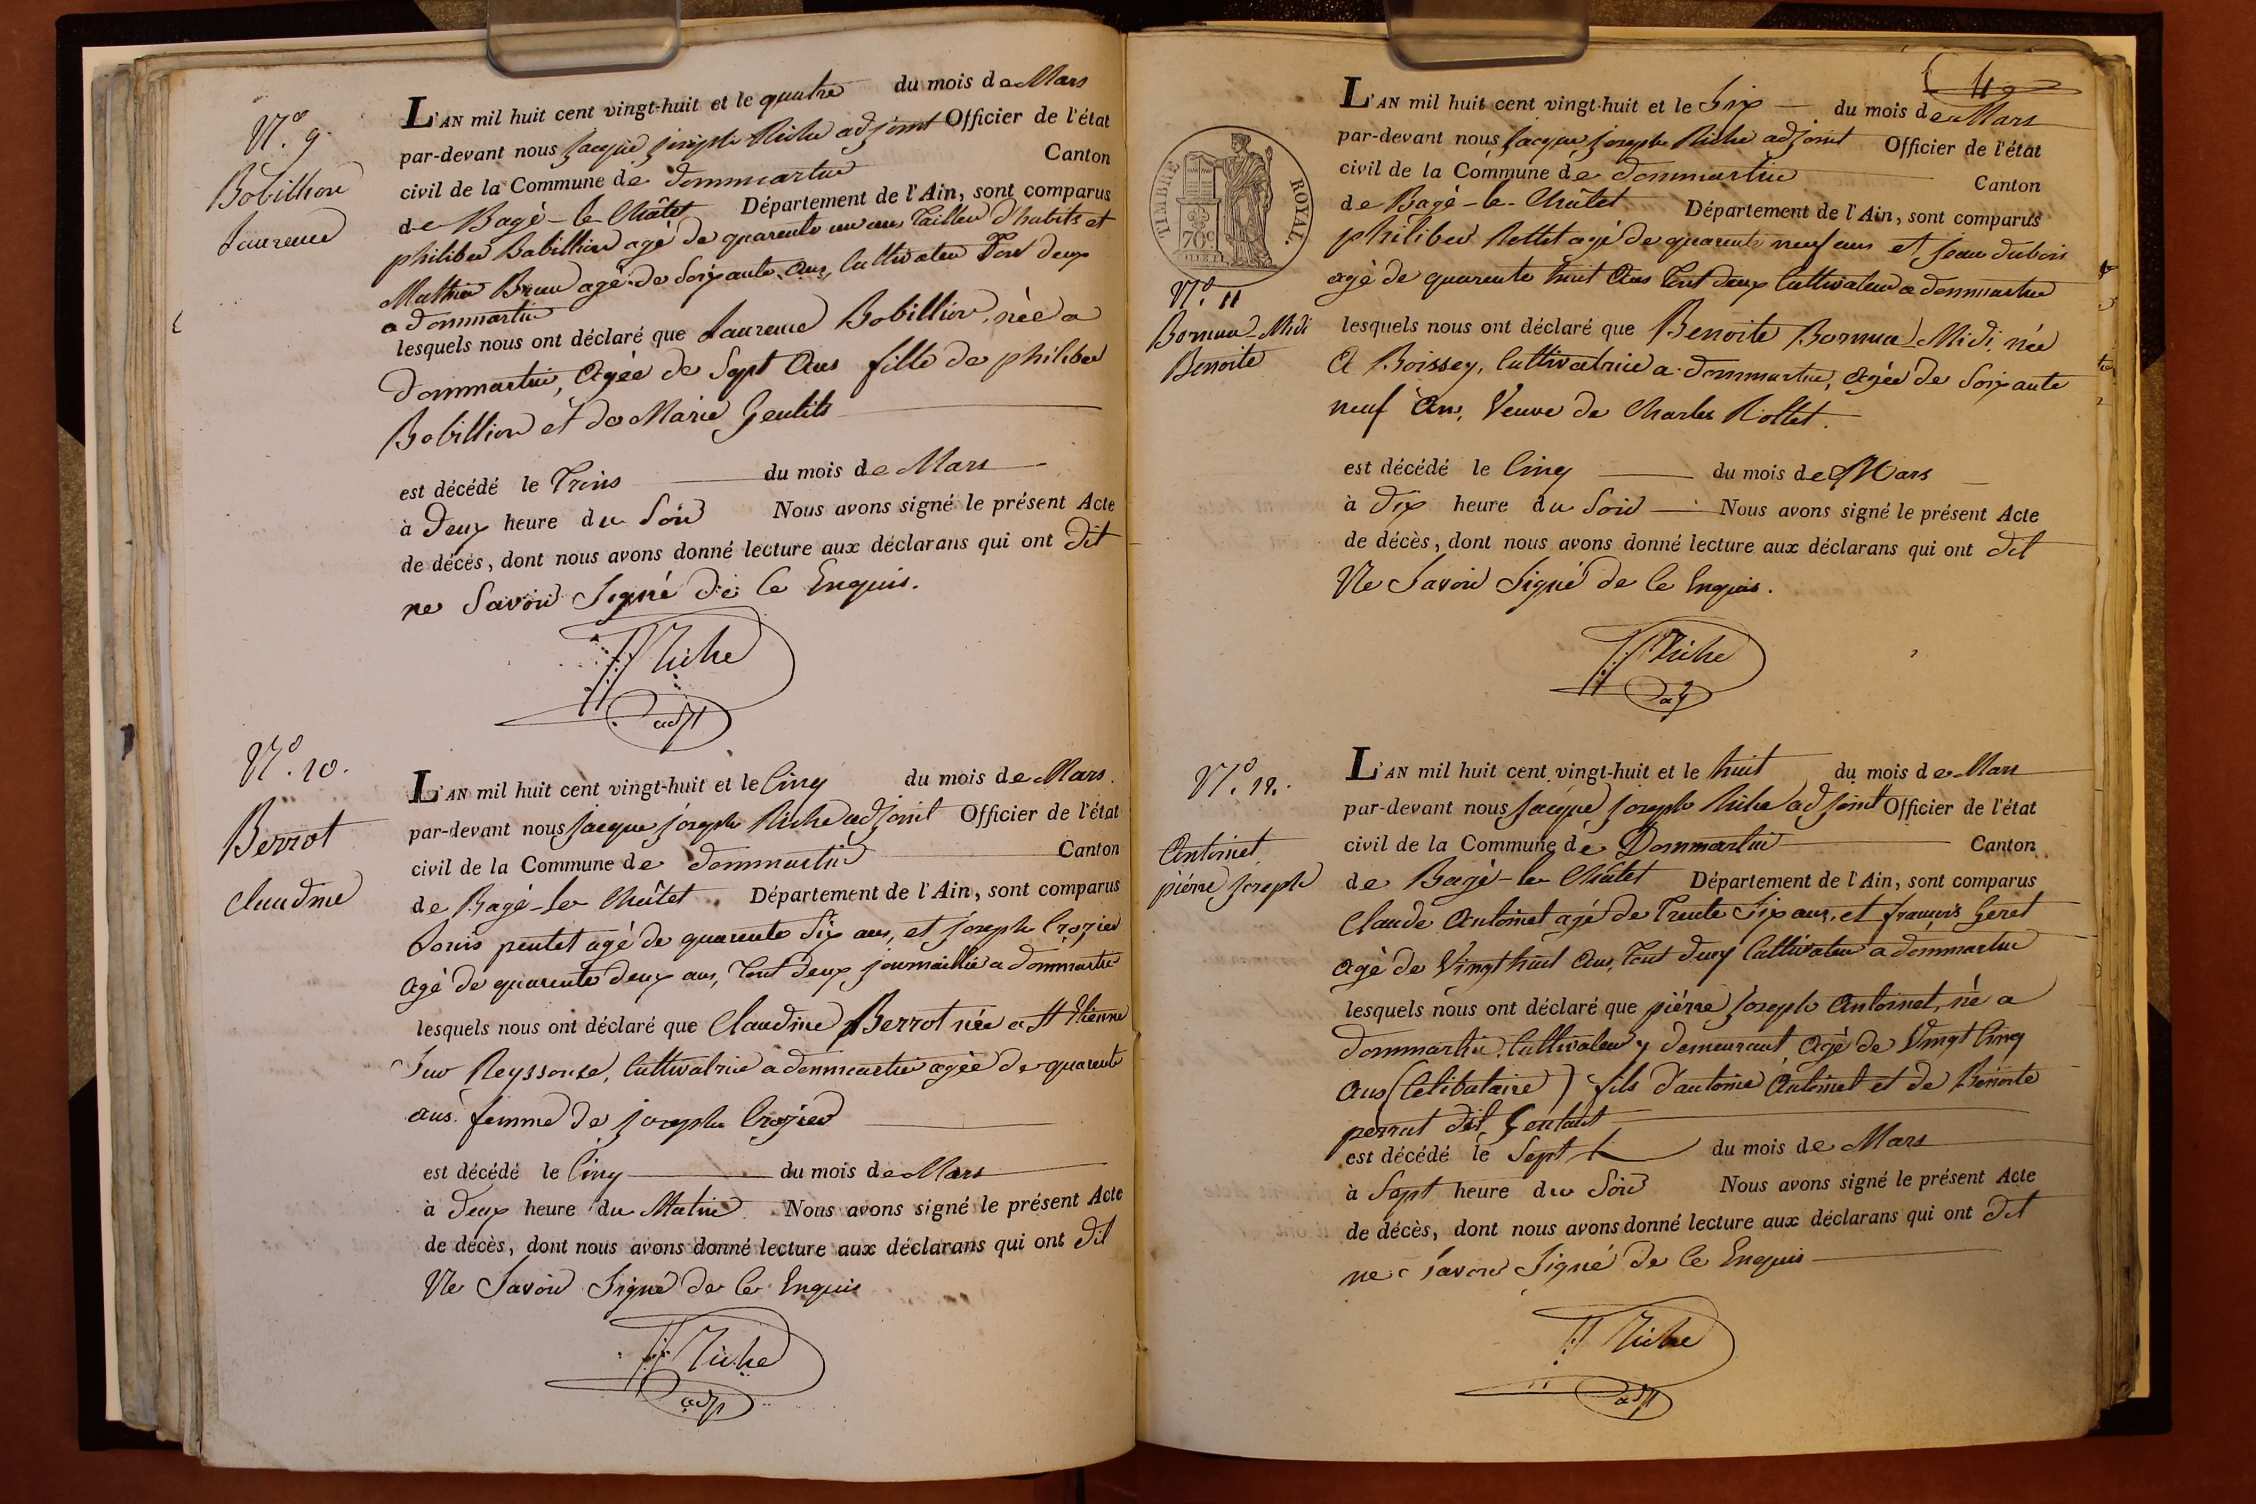 N.º 9.
Bobillion
Laurence
L'AN mil huit cent vingt-huit et le quatre du mois de Mars
par-devant nous Jacque joseph Riche adjoint Officier de l'état
civil de la Commune de dommartin Canton
de Bagé-le-Châtet Département de l'Ain, sont comparus
philiber Bobillion agé de quarente un ans Tailleur d'habits et
Mathieu Brun agé de Soixante Ans, Cultivateur Tout deux
a dommartin
lesquels nous ont déclaré que Laurence Bobillion, née a
dommartin, Agée de Sept Ans fille de philiber
Bobillion et de Marie Gentits
est décédé le Trois du mois de Mars
à Deux heure du Soir Nous avons signé le présent Acte
de décès, dont nous avons donné lecture aux déclarans qui ont dit
ne Savoir Signé de Ce Enquis.
JJ Riche
adjt
N.º 10.
Berrot
Claudine
L'AN mil huit cent vingt-huit et le Cinq du mois de Mars.
par-devant nous Jacque joseph Riche adjoint Officier de l'état
civil de la Commune de dommartin Canton
de Bagé-le-Châtet Département de l'Ain, sont comparus
Louis pentet agé de quarente Six ans, et joseph Crozier
Agé de quarente deux ans, Tout deux journaillié a dommartin
lesquels nous ont déclaré que Claudine Berrot née a St Etienne
Sur Reyssouse, Cultivatrice a dommartin agée de quarente
ans. femme de joseph Crozier
est décédé le Cinq du mois de Mars
à Deux heure du Matin Nous avons signé le présent Acte
de décès, dont nous avons donné lecture aux déclarans qui ont dit
Ne Savoir Signé de Ce Enquis
JJ Riche
adjt
TIMBRE ROYAL.
70c
N.º 11
Bornua-Midi
Benoite
L'AN mil huit cent vingt-huit et le Six du mois de Mars
par-devant nous Jacque joseph Riche adjoint Officier de l'état
civil de la Commune de dommartin Canton
de Bagé-le-Châtet Département de l'Ain, sont comparus
philiber Rollet agé de quarente neuf ans et jean dubois
agé de quarente huit Ans Tout deux Cultivateur a dommartin
lesquels nous ont déclaré que Benoite Bornua Midi, née
A Boissey, Cultivatrice a dommartin, Agée de Soixante
neuf An, Veuve de Charles Rollet.
est décédé le Cinq du mois de Mars
à Dix heure du Soir Nous avons signé le présent Acte
de décès, dont nous avons donné lecture aux déclarans qui ont dit
Ne Savoir Signé de Ce Enquis.
JJ Riche
N.º 12.
Antoinet
piérre joseph
L'AN mil huit cent vingt-huit et le huit du mois de Mars
par-devant nous Jacque joseph Riche adjoint Officier de l'état
civil de la Commune de Dommartin Canton
de Bagé-le-Châtet Département de l'Ain, sont comparus
Claude Antoinet agé de Trente Six ans, et françois Geret
Agé de Vingt huit Ans, Tout deux Cultivateur a dommartin
lesquels nous ont déclaré que piérre joseph Antoinet, né a
dommartin, Cultivateur y demeurant, Agé de Vingt Cinq
Ans (Celibataire) fils d'antoine Antoinet et de Benoite
perrut dit Gentait
est décédé le Sept du mois de Mars
à Sept heure du Soir Nous avons signé le présent Acte
de décès, dont nous avons donné lecture aux déclarans qui ont dit
ne Savoir Signé de Ce Enquis
JJ Riche
adjt